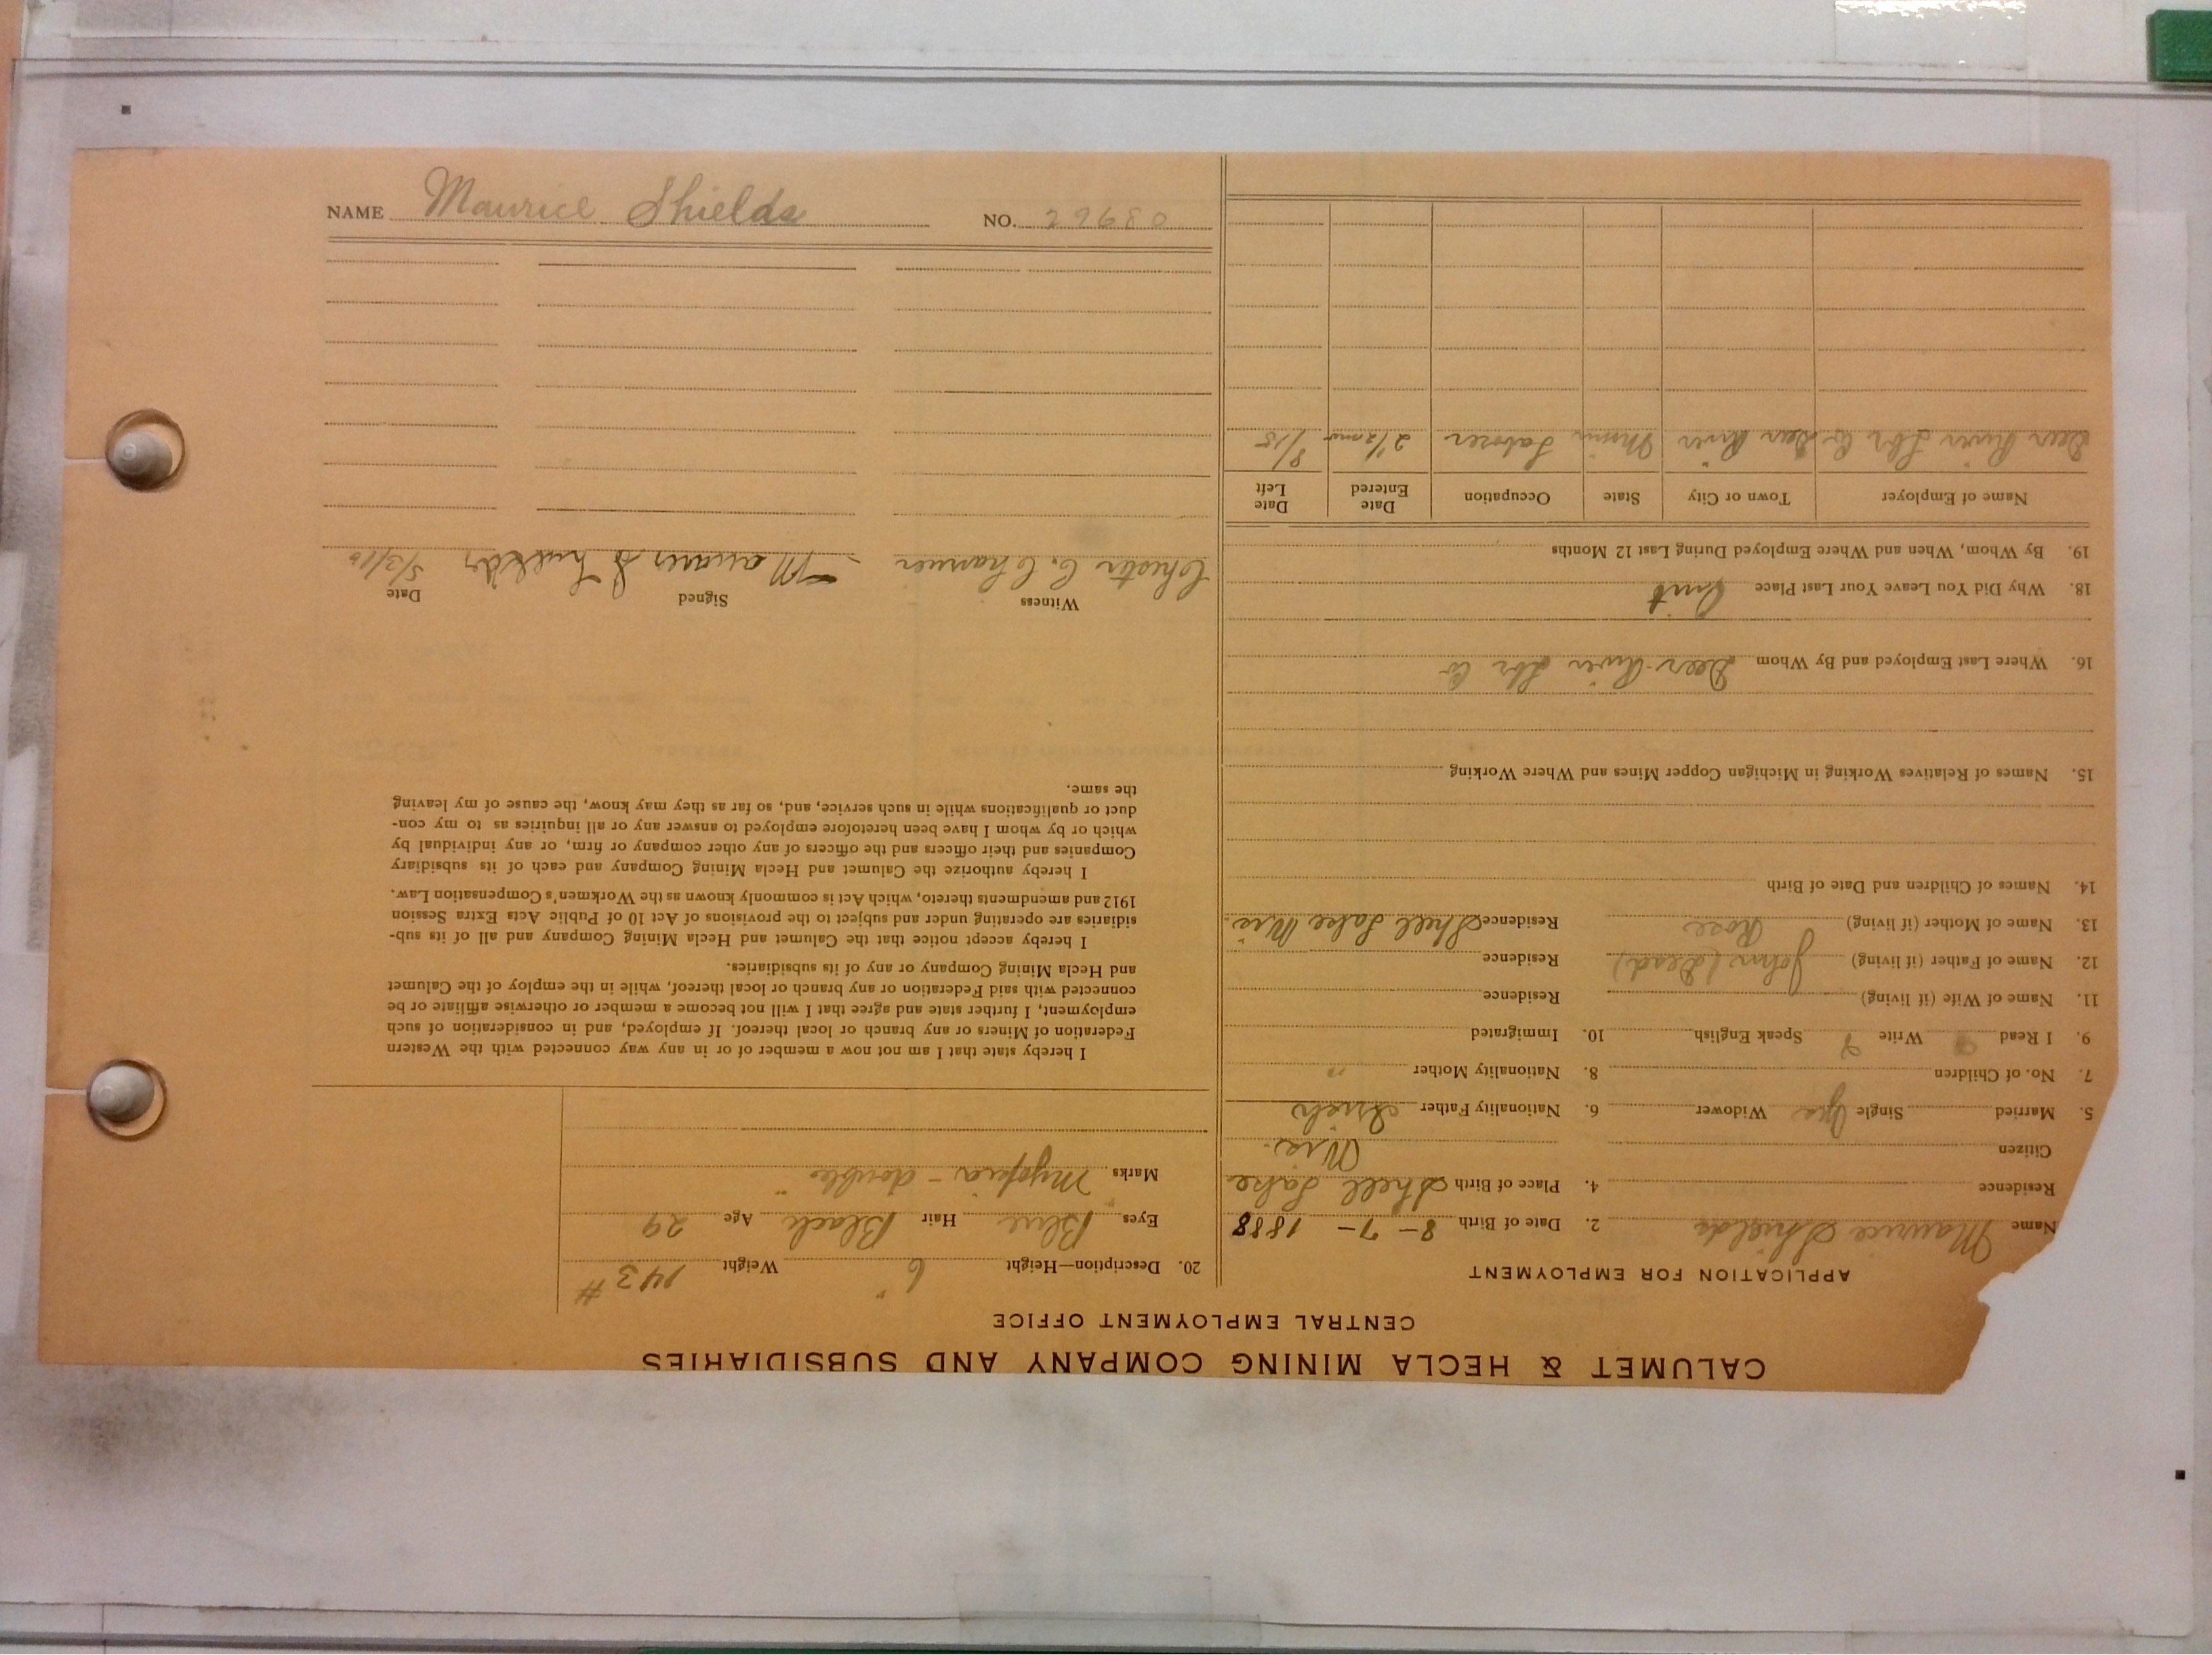 CALUMET & HECLA MINING COMPANY AND SUBSIDIARIES
CENTRAL EMPLOYMENT OFFICE
APPLICATION FOR EMPLOYMENT
Name Maurice Shields 2. Date of Birth 8-7-1888
Residence 4. Place of Birth Shell Lake
Citizen Wis.
5. Married Single Yes Widower 6. Nationality Father Irish
7. No. of Children 8. Nationality Mother "
9. I Read Write Speak English 10. Immigrated
11. Name of Wife (if living) Residence
12. Name of Father (if living) John (Dead) Residence
13. Name of Mother (if living) Rose Residence Shell Lake Wis.
14. Names of Children and Date of Birth
15. Names of Relatives Working in Michigan Copper Mines and Where Working
16. Where Last Employed and By Whom Deer River Lbr Co
18. Why Did You Leave Your Last Place Quit
19. By Whom, When and Where Employed During Last 12 Months
Name of Employer Town or City State Occupation Date Entered Date Left
Deer River Lbr Co. Deer River Minn Laborer 2 1/2 mos 8/15
20. Description—Height 6" Weight 143#
Eyes Blue Hair Black Age 29
Marks Myopia - double
I hereby state that I am not now a member of or in any way connected with the Western
Federation of Miners or any branch or local thereof. If employed, and in consideration of such
employment, I further state and agree that I will not become a member or otherwise affiliate or be
connected with said Federation or any branch or local thereof, while in the employ of the Calumet
and Hecla Mining Company or any of its subsidiaries.
I hereby accept notice that the Calumet and Hecla Mining Company and all of its sub-
sidiaries are operating under and subject to the provisions of Act 10 of Public Acts Extra Session
1912 and amendments thereto, which Act is commonly known as the Workmen's Compensation Law.
I hereby authorize the Calumet and Hecla Mining Company and each of its subsidiary
Companies and their officers and the officers of any other company or firm, or any individual by
which or by whom I have been heretofore employed to answer any or all inquiries as to my con-
duct or qualifications while in such service, and, so far as they may know, the cause of my leaving
the same.
Witness Signed Date
C. Maurice Shields
NAME Maurice Shields NO. 29680